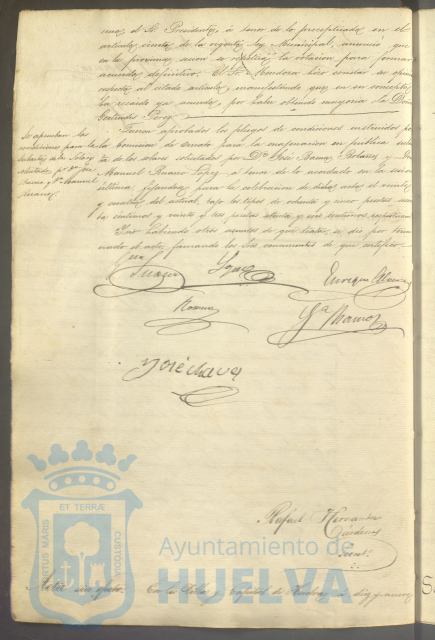 el Sr. Presidente, á tenor de lo preceptuado en el
artículo ciento de la vigente ley Municipal, anunció que
en la próxima sesion se repetirá la votacion para formar
acuerdo definitivo. El Sr. Mendoza hizo constar
al citado artículo, manifestando que en su concepto
ha recaido ya acuerdo, por haber obtenido mayoria la Doña
Gertrudis Perez.
Se aprueban las
condiciones para la
subasta de solares
solicitados por Dn. José
Ramos y Dn. Manuel
Suarez.
Fueron aprobados los pliegos de condiciones instruidos por
la Comision de Ornato para la enagenacion en publica subas-
ta de los solares solicitados por Dn. José Ramos y Dn.
Manuel Suarez Lopez, á tenor de lo acordado en la sesion
última, fijandose para la celebracion de dichos actos el
del actual, bajo los tipos de ochenta y cinco pesetas
céntimos y veinte y tres pesetas ochenta y seis centimos
No habiendo otros asuntos de que tratar, se dió por termi-
nado el acto, firmando los Sres. concurrentes de que certifico.
Suarez
Enrique
Gª Ramos
José Chaves
Rafael Hernandez
Cárdenas
Secret.
ET TERRÆ
PORTUS MARIS
CUSTODIA
Ayuntamiento de
HUELVA
Acta sin efecto. En la Villa y Capital de Huelva á diez y nueve